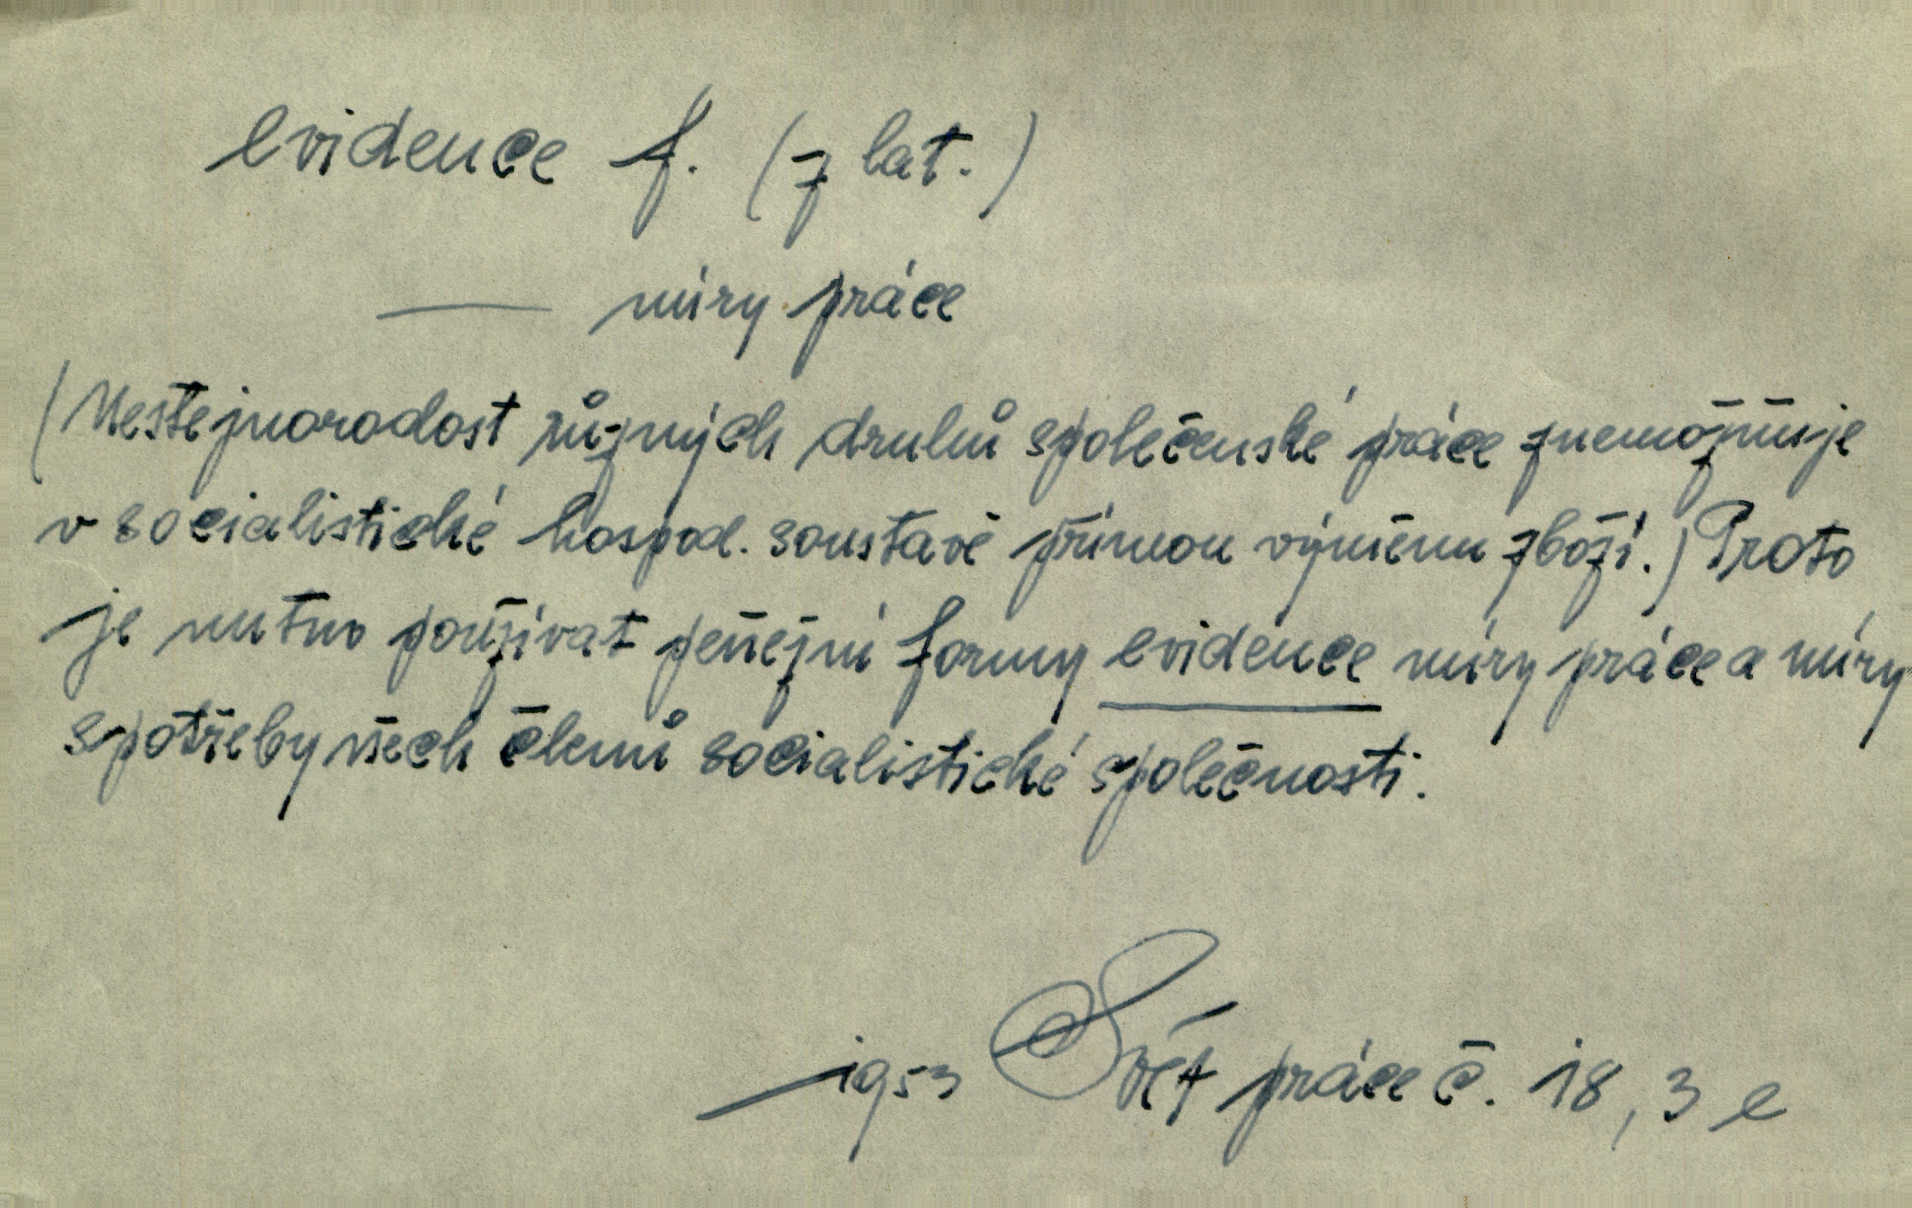 evidence f. (z lat.)
— míry práce
(Nestejnorodost různých druhů společenské práce znemožňuje
v socialistické hospod. soustavě přímou výměnu zboží.) Proto
je nutno použivat peněžní formy evidence míry práce a míry
spotřeby všech členů socialistické společnosti.
1953 Svět práce č. 18, 3 e